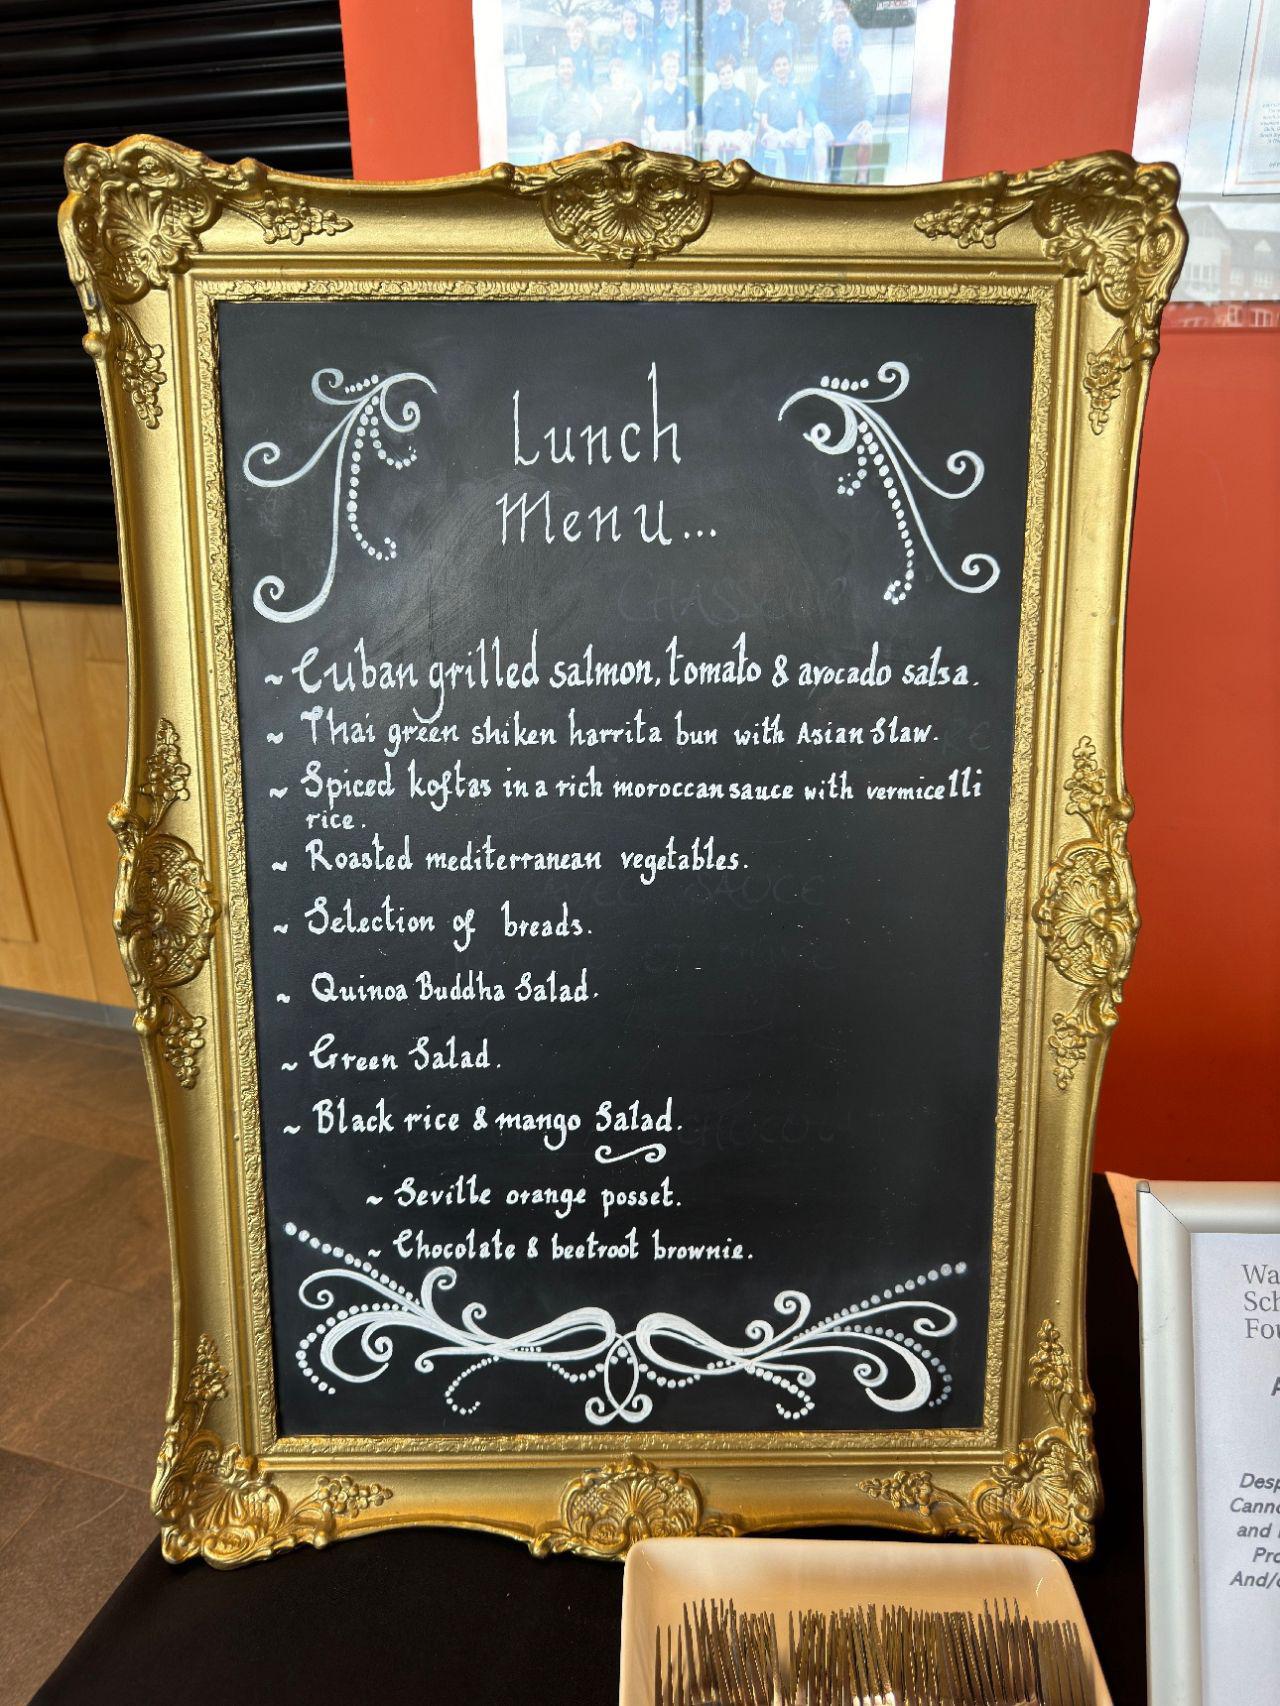 Lunch
Menu...
~ Cuban grilled salmon, tomato & avocado salsa.
~ Thai green shiken harrita bun with Asian Slaw.
~ Spiced koftas in a rich moroccan sauce with vermicelli
rice.
~ Roasted mediterranean vegetables.
~ Selection of breads.
~ Quinoa Buddha Salad.
~ Green Salad.
~ Black rice & mango Salad.
~ Seville orange posset.
~ Chocolate & beetroot brownie.
Wa
Sch
Fou
A
Desp
Canno
and
Pro
And/